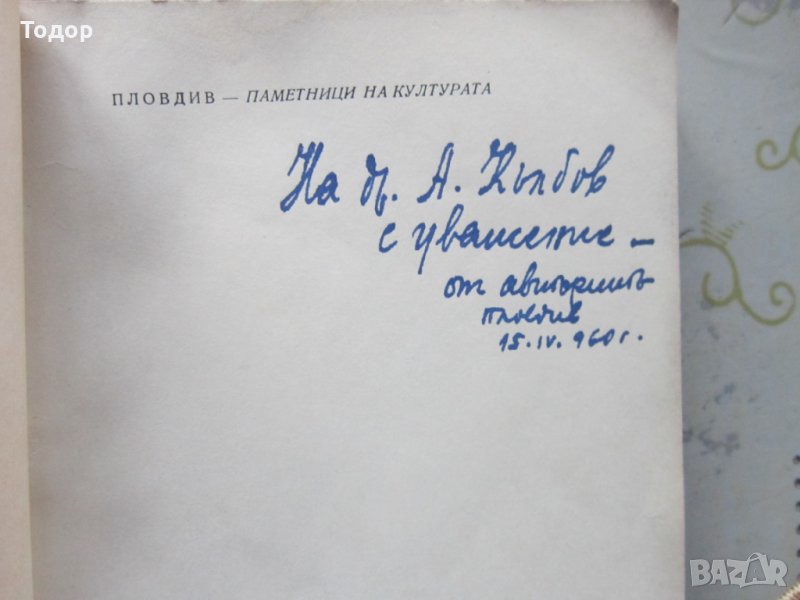 Тодор
ПЛОВДИВ — ПАМЕТНИЦИ НА КУЛТУРАТА
На др. А. Кълбов
с уважение —
от авторите
Пловдив
15.IV.960 г.
BAZAR